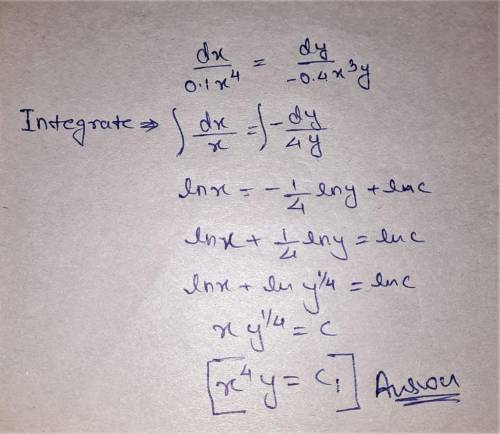 dx/0.1x⁴ = dy/-0.4x³y
Integrate ⇒ ∫ dx/x = ∫ - dy/4y
lnx = - 1/4 lny + lnc
lnx + 1/4 lny = lnc
lnx + ln y^1/4 = lnc
x y^1/4 = c
[x⁴y = c₁] Answer